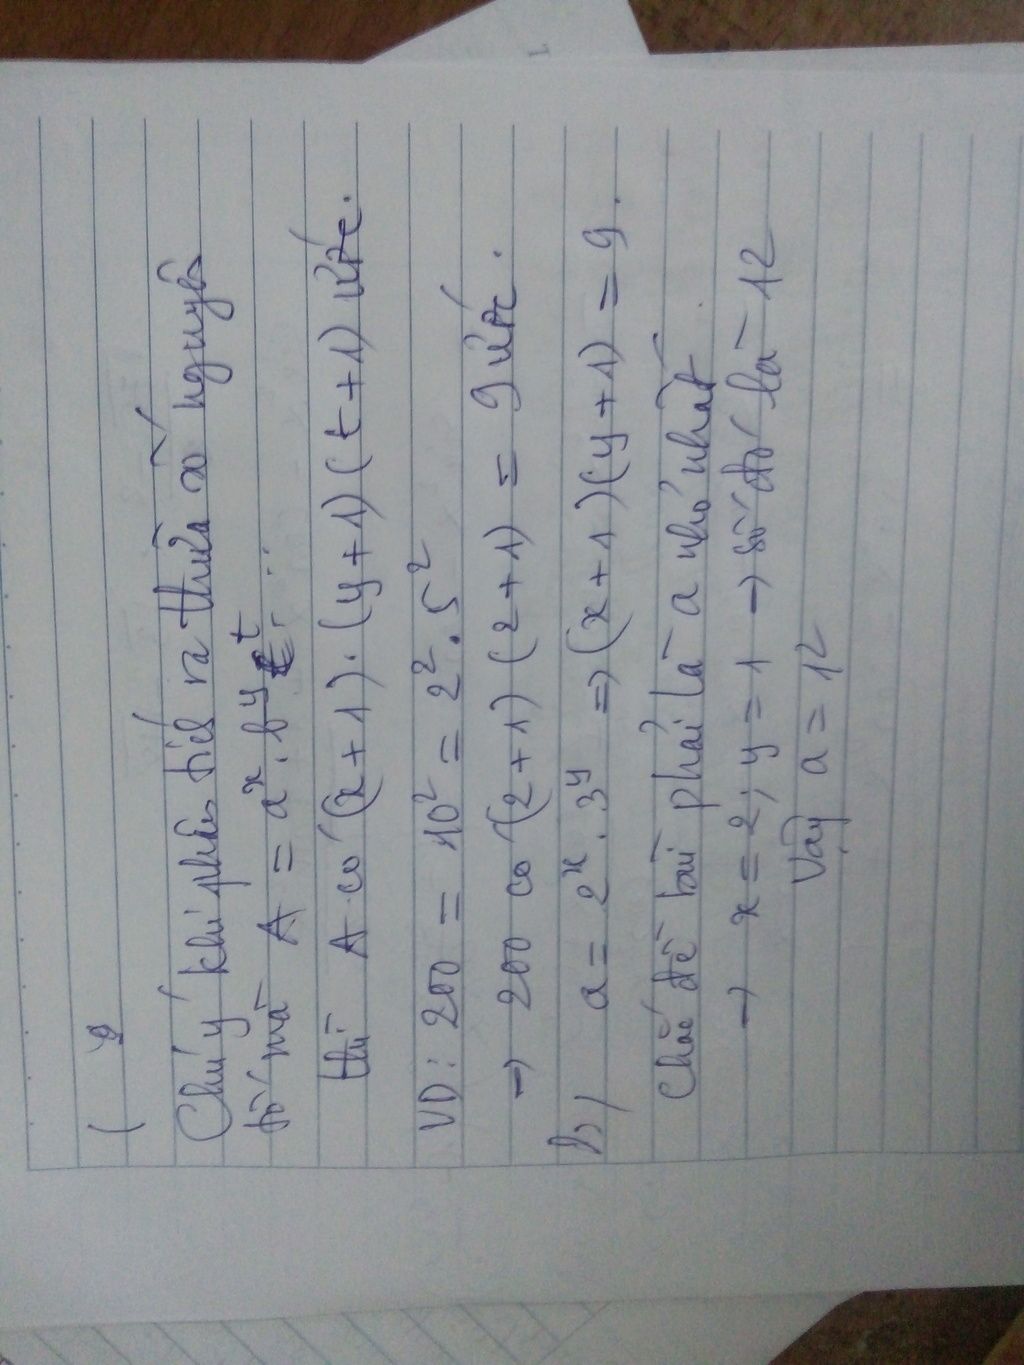 Chú ý khi phân tích ra thừa số nguyên
tố mà A = aˣ . bʸ ᵗ ...
thì A có (x + 1) . (y + 1) (t + 1) ước.
VD : 200 = 10² = 2² . 5²
→ 200 có (2 + 1) (2 + 1) = 9 ước .
b, a = 2ˣ . 3ʸ ⇒ (x + 1) (y + 1) = 9 .
Chắc đề bài phải là a nhỏ nhất
→ x = 2 ; y = 1 → số đó là 12
Vậy a = 12